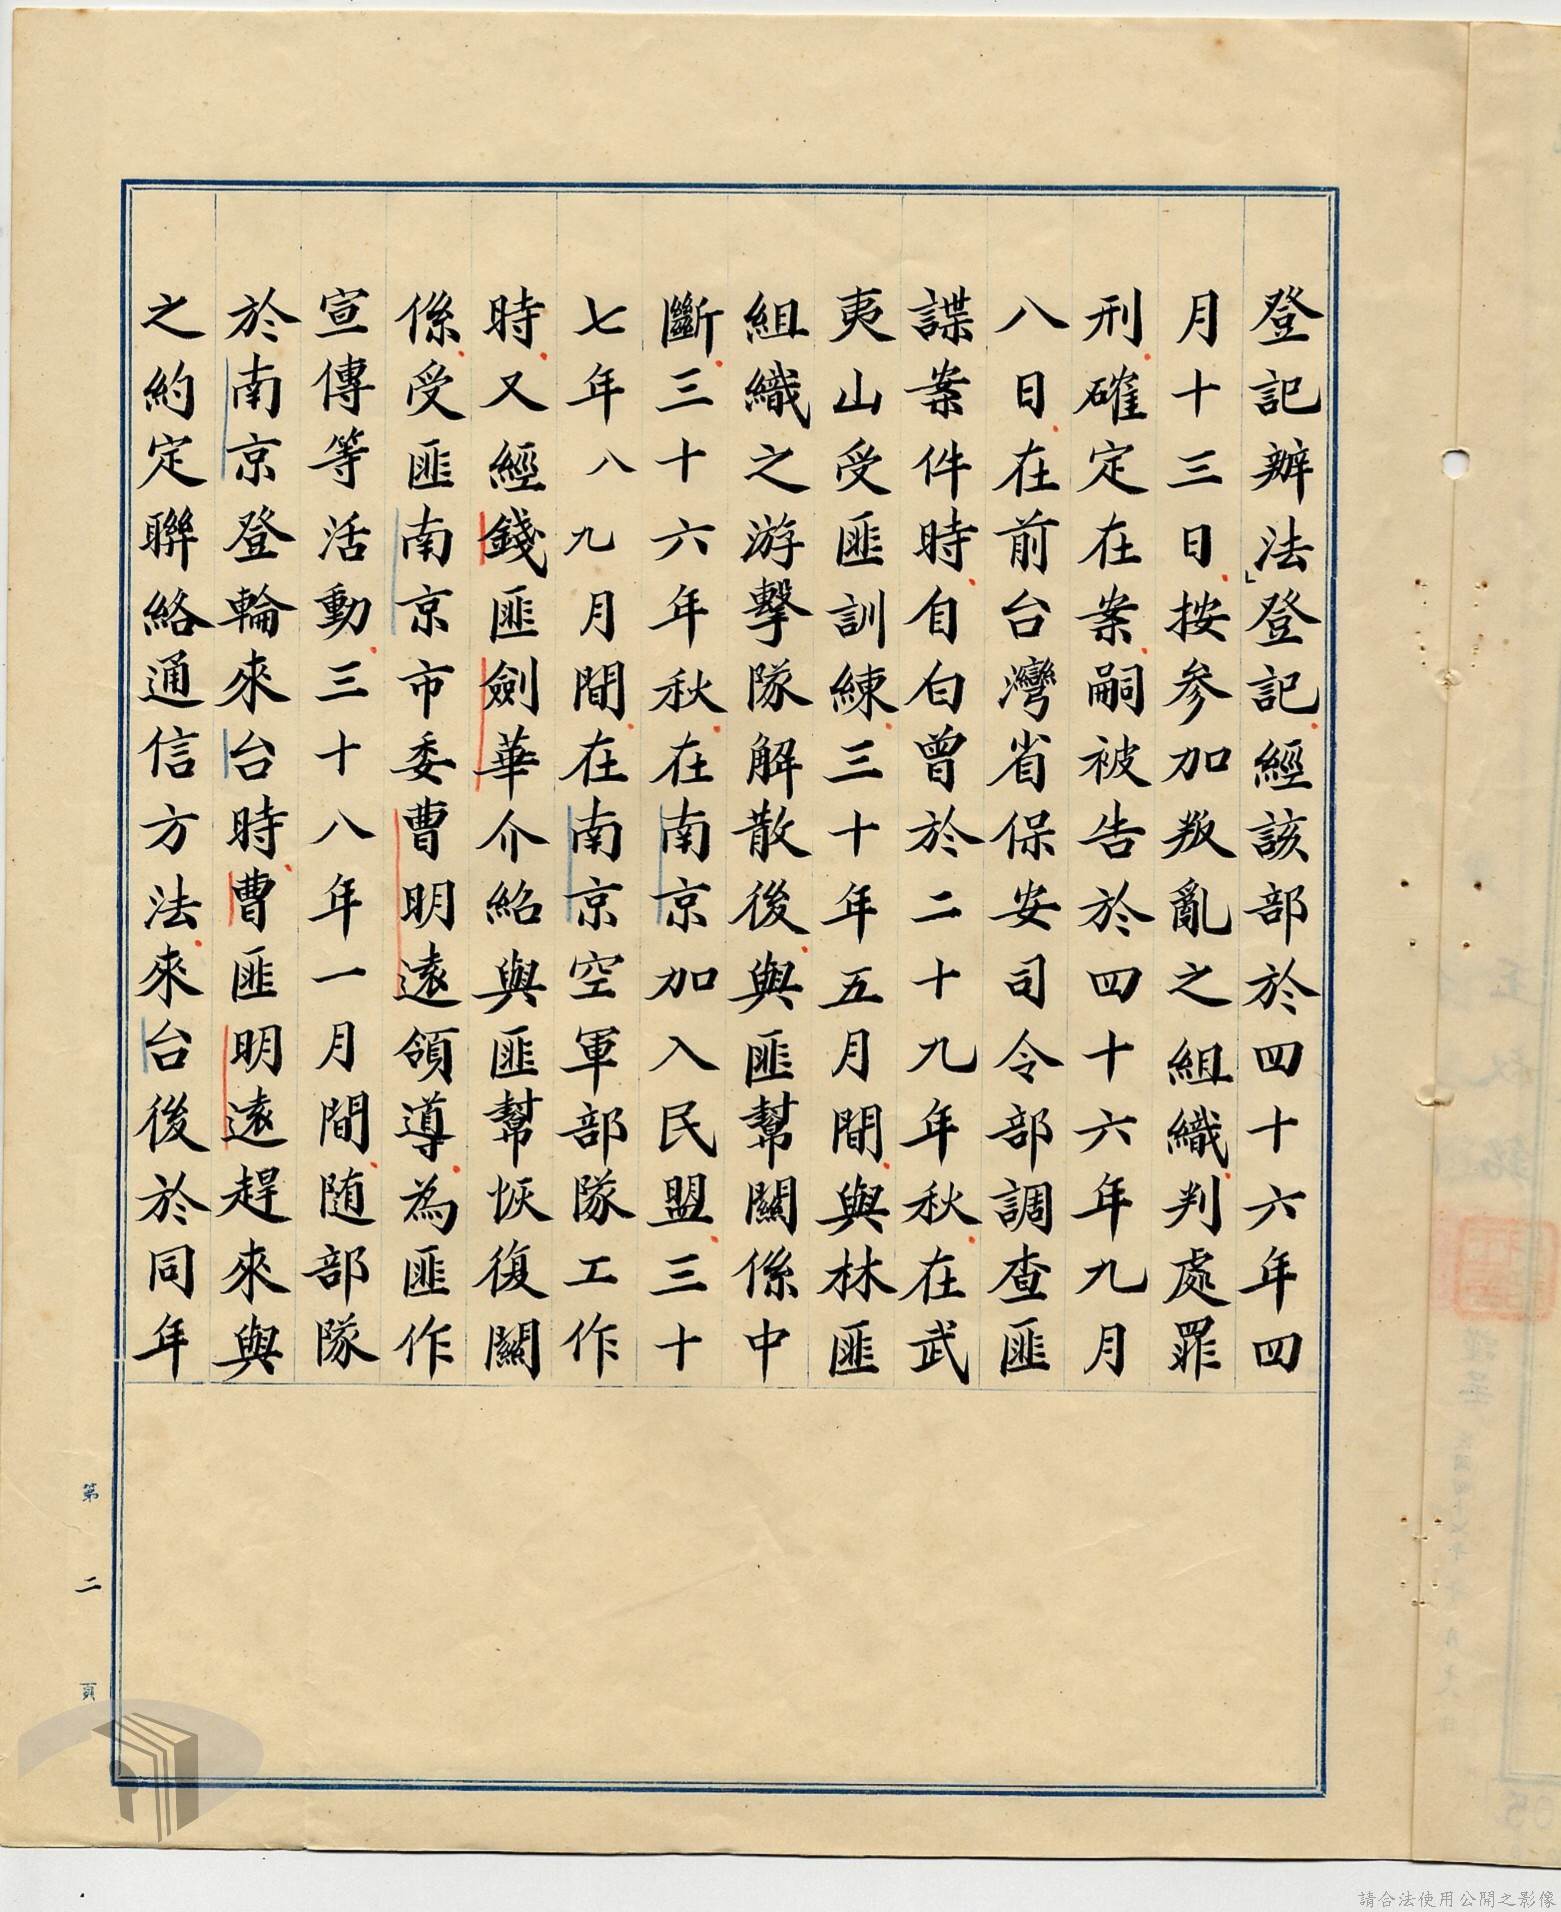 登記辦法」登記經該部於四十六年四
月十三日按參加叛亂之組織判處罪
刑確定在案嗣被告於四十六年九月
八日在前台灣省保安司令部調查匪
諜案件時自白曾於二十九年秋在武
夷山受匪訓練三十年五月間與林匪
組織之游擊隊解散後與匪幫關係中
斷三十六年秋在南京加入民盟三十
七年八九月間在南京空軍部隊工作
時又經錢匪劍華介紹與匪幫恢復關
係受匪南京市委曹明遠領導為匪作
宣傳等活動三十八年一月間随部隊
於南京登輪來台時曹匪明遠趕來與
之約定聯絡通信方法來台後於同年
第二頁
請合法使用公開之影像